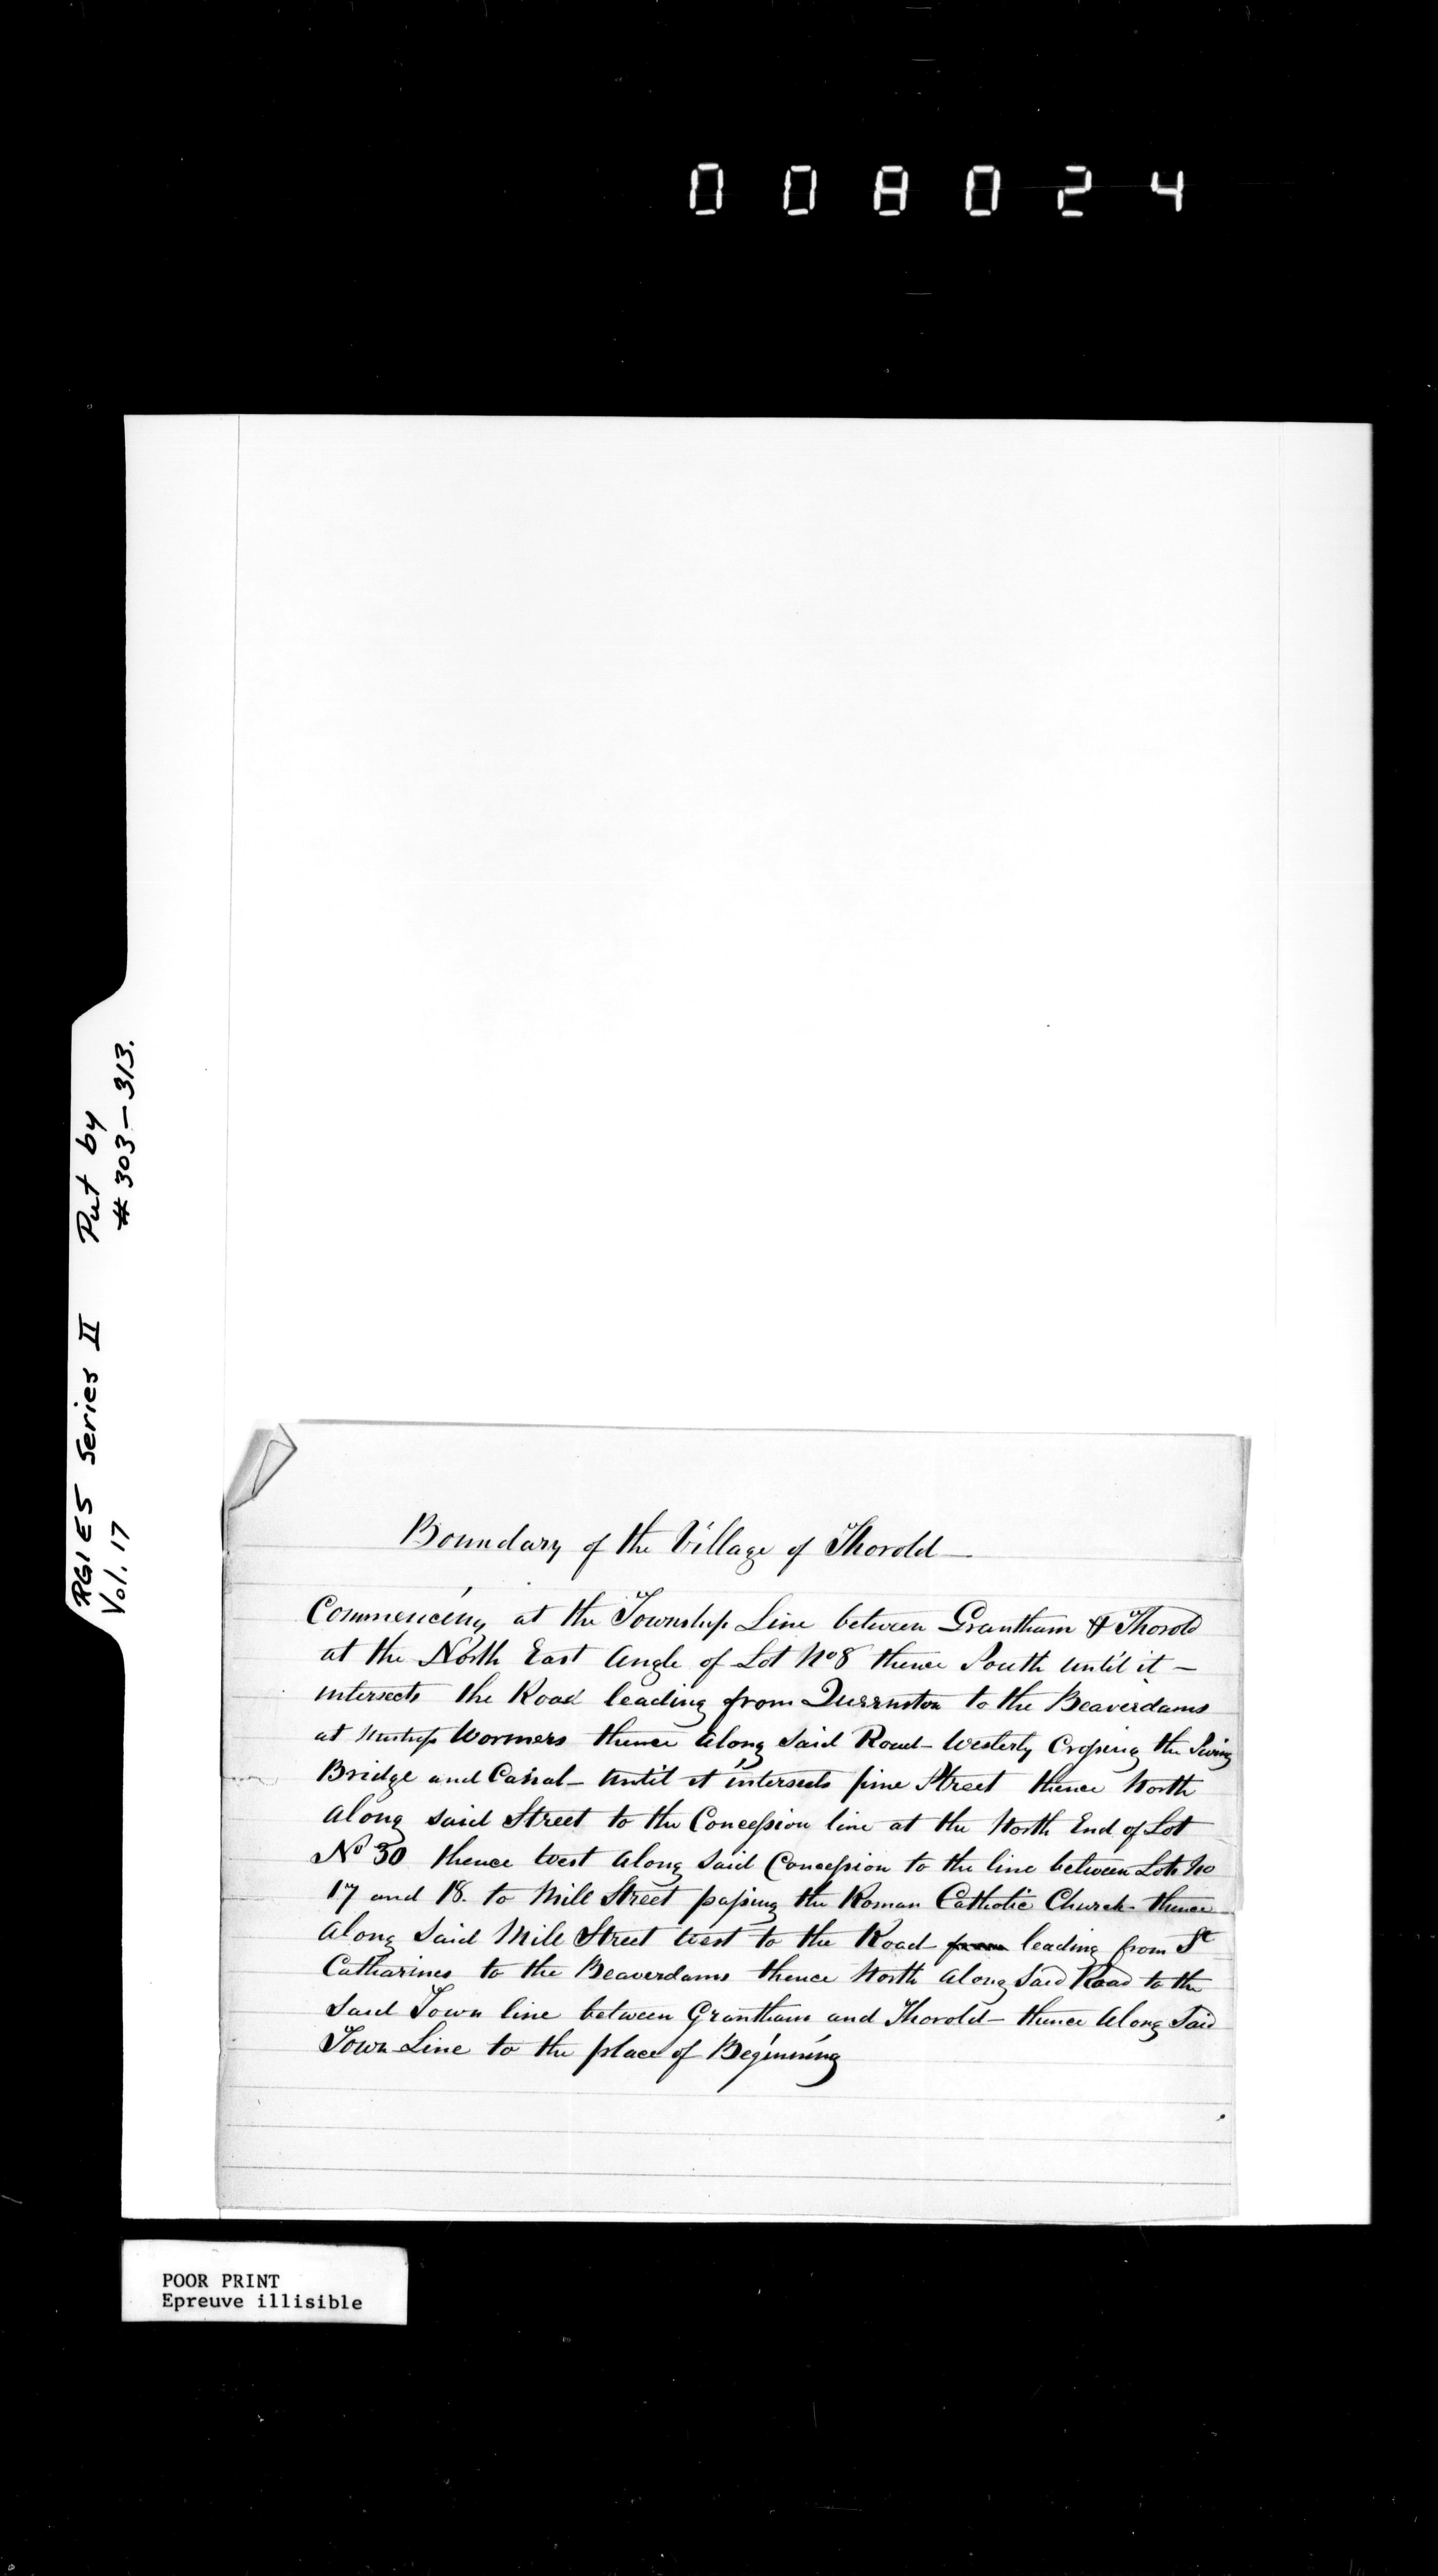 008024
RG1 E5 Series II Put by
Vol. 17 # 303-313.
Boundary of the Village of Thorold—
Commencing at the Township Line between Grantham & Thorold
at the North East Angle of Lot No 8 thence South until it —
intersects the Road leading from to the Beaverdams
at Wormers thence along said Road— Westerly Crossing the Swing
Bridge and Canal— until it intersects pine Street thence North
along said Street to the Concession line at the North End of Lot
No 30 thence West along said Concession to the line between Lots No
17 and 18. to Mill Street passing the Roman Catholic Church— thence
along said Mill Street West to the Road from leading from St
Catharines to the Beaverdams thence North along said Road to the
said Town line between Grantham and Thorold— thence along said
Town Line to the place of Beginning
POOR PRINT
Epreuve illisible